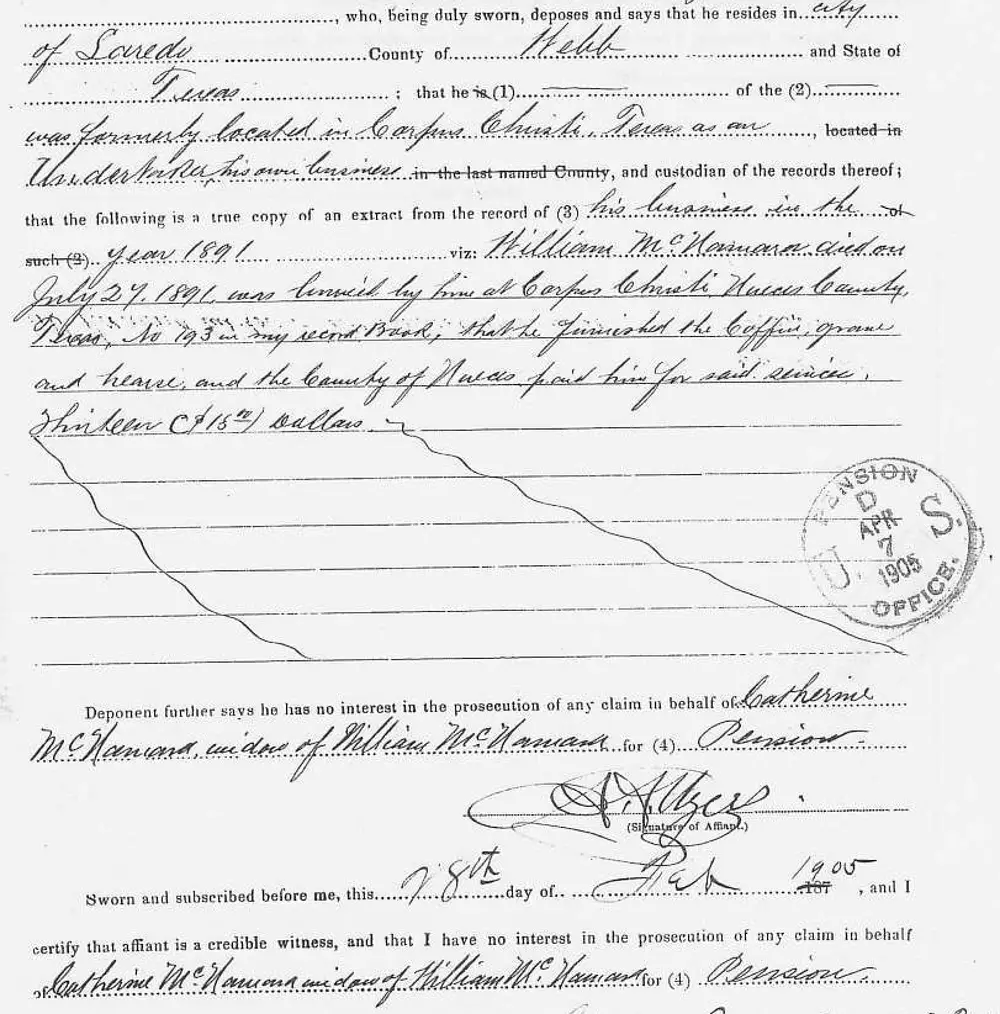 , who, being duly sworn, deposes and says that he resides in city
of Laredo County of Webb and State of
Texas ; that he is (1) of the (2)
was formerly located in Corpus Christi, Texas as an , located in
Undertaker, his own business in the last named County, and custodian of the records thereof;
that the following is a true copy of an extract from the record of (3) his business in the of
such (2) year 1891 viz: William McNamara died on
July 27, 1891, was buried by him at Corpus Christi, Nueces County,
Texas, No 193 in my record Book, that he furnished the Coffin, grave
and hearse, and the County of Nueces paid him for said service,
Thirteen Dollars
PENSION
D
U. S.
APR
7
1905
OFFICE.
Deponent further says he has no interest in the prosecution of any claim in behalf of Catherine
McNamara, widow of William McNamara for (4) Pension.
(Signature of Affiant.)
Sworn and subscribed before me, this 28th day of Feb 1905 187 , and I
certify that affiant is a credible witness, and that I have no interest in the prosecution of any claim in behalf
of Catherine McNamara widow of William McNamara for (4) Pension.